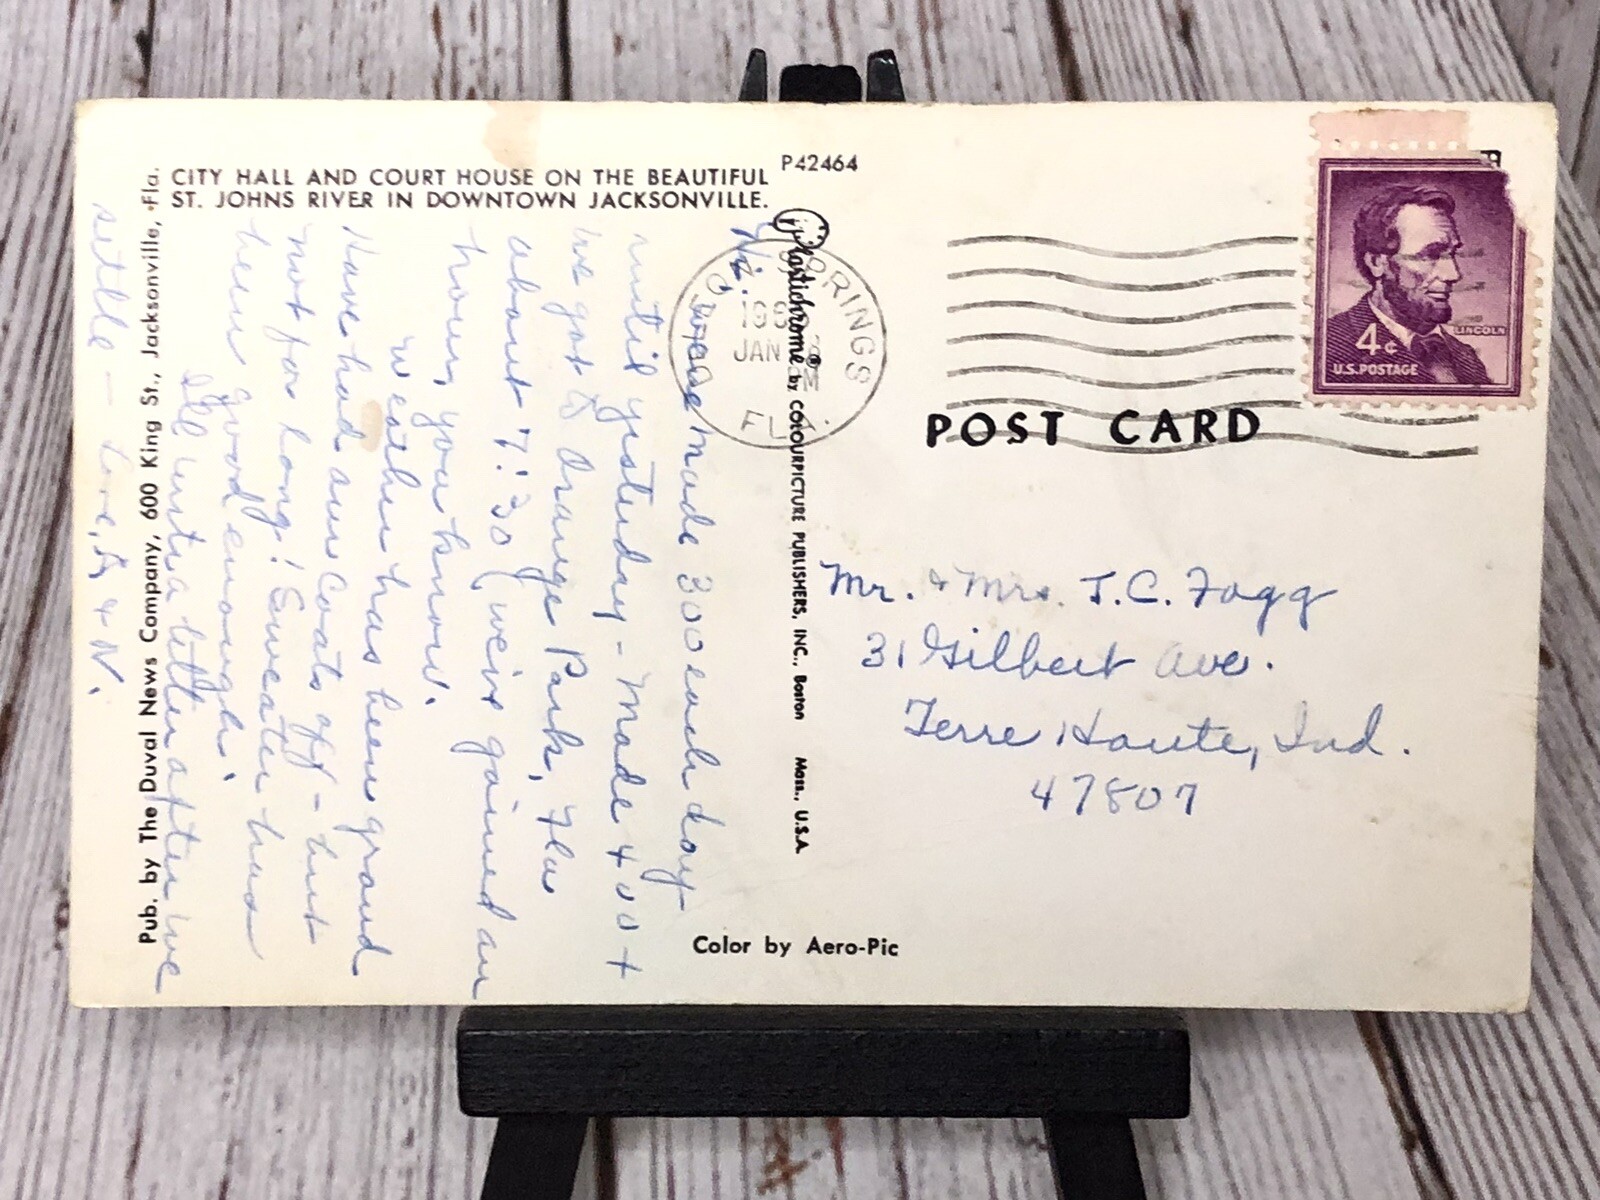 CITY HALL AND COURT HOUSE ON THE BEAUTIFUL
ST. JOHNS RIVER IN DOWNTOWN JACKSONVILLE.
P42464
Pub. by The Duval News Company, 600 King St., Jacksonville, Fla.
Hi.
We made 300 each day
until yesterday - Made 400 +
we got to Orange Park, Fla
about 7:30 (we've gained an
hour, you know.
Weather has been grand
Have had our coats off - but
not for long! Sweater has
been good enough!
I'll write a letter after we
settle - Love, & N.
Plastichrome® by COLOURPICTURE PUBLISHERS, INC., Boston Mass., U.S.A.
Color by Aero-Pic
SPRINGS
JAN
FLA.
LINCOLN
4¢
U.S. POSTAGE
POST CARD
Mr. & Mrs. J.C. Fagg
31 Gilbert Ave.
Terre Haute, Ind.
47807